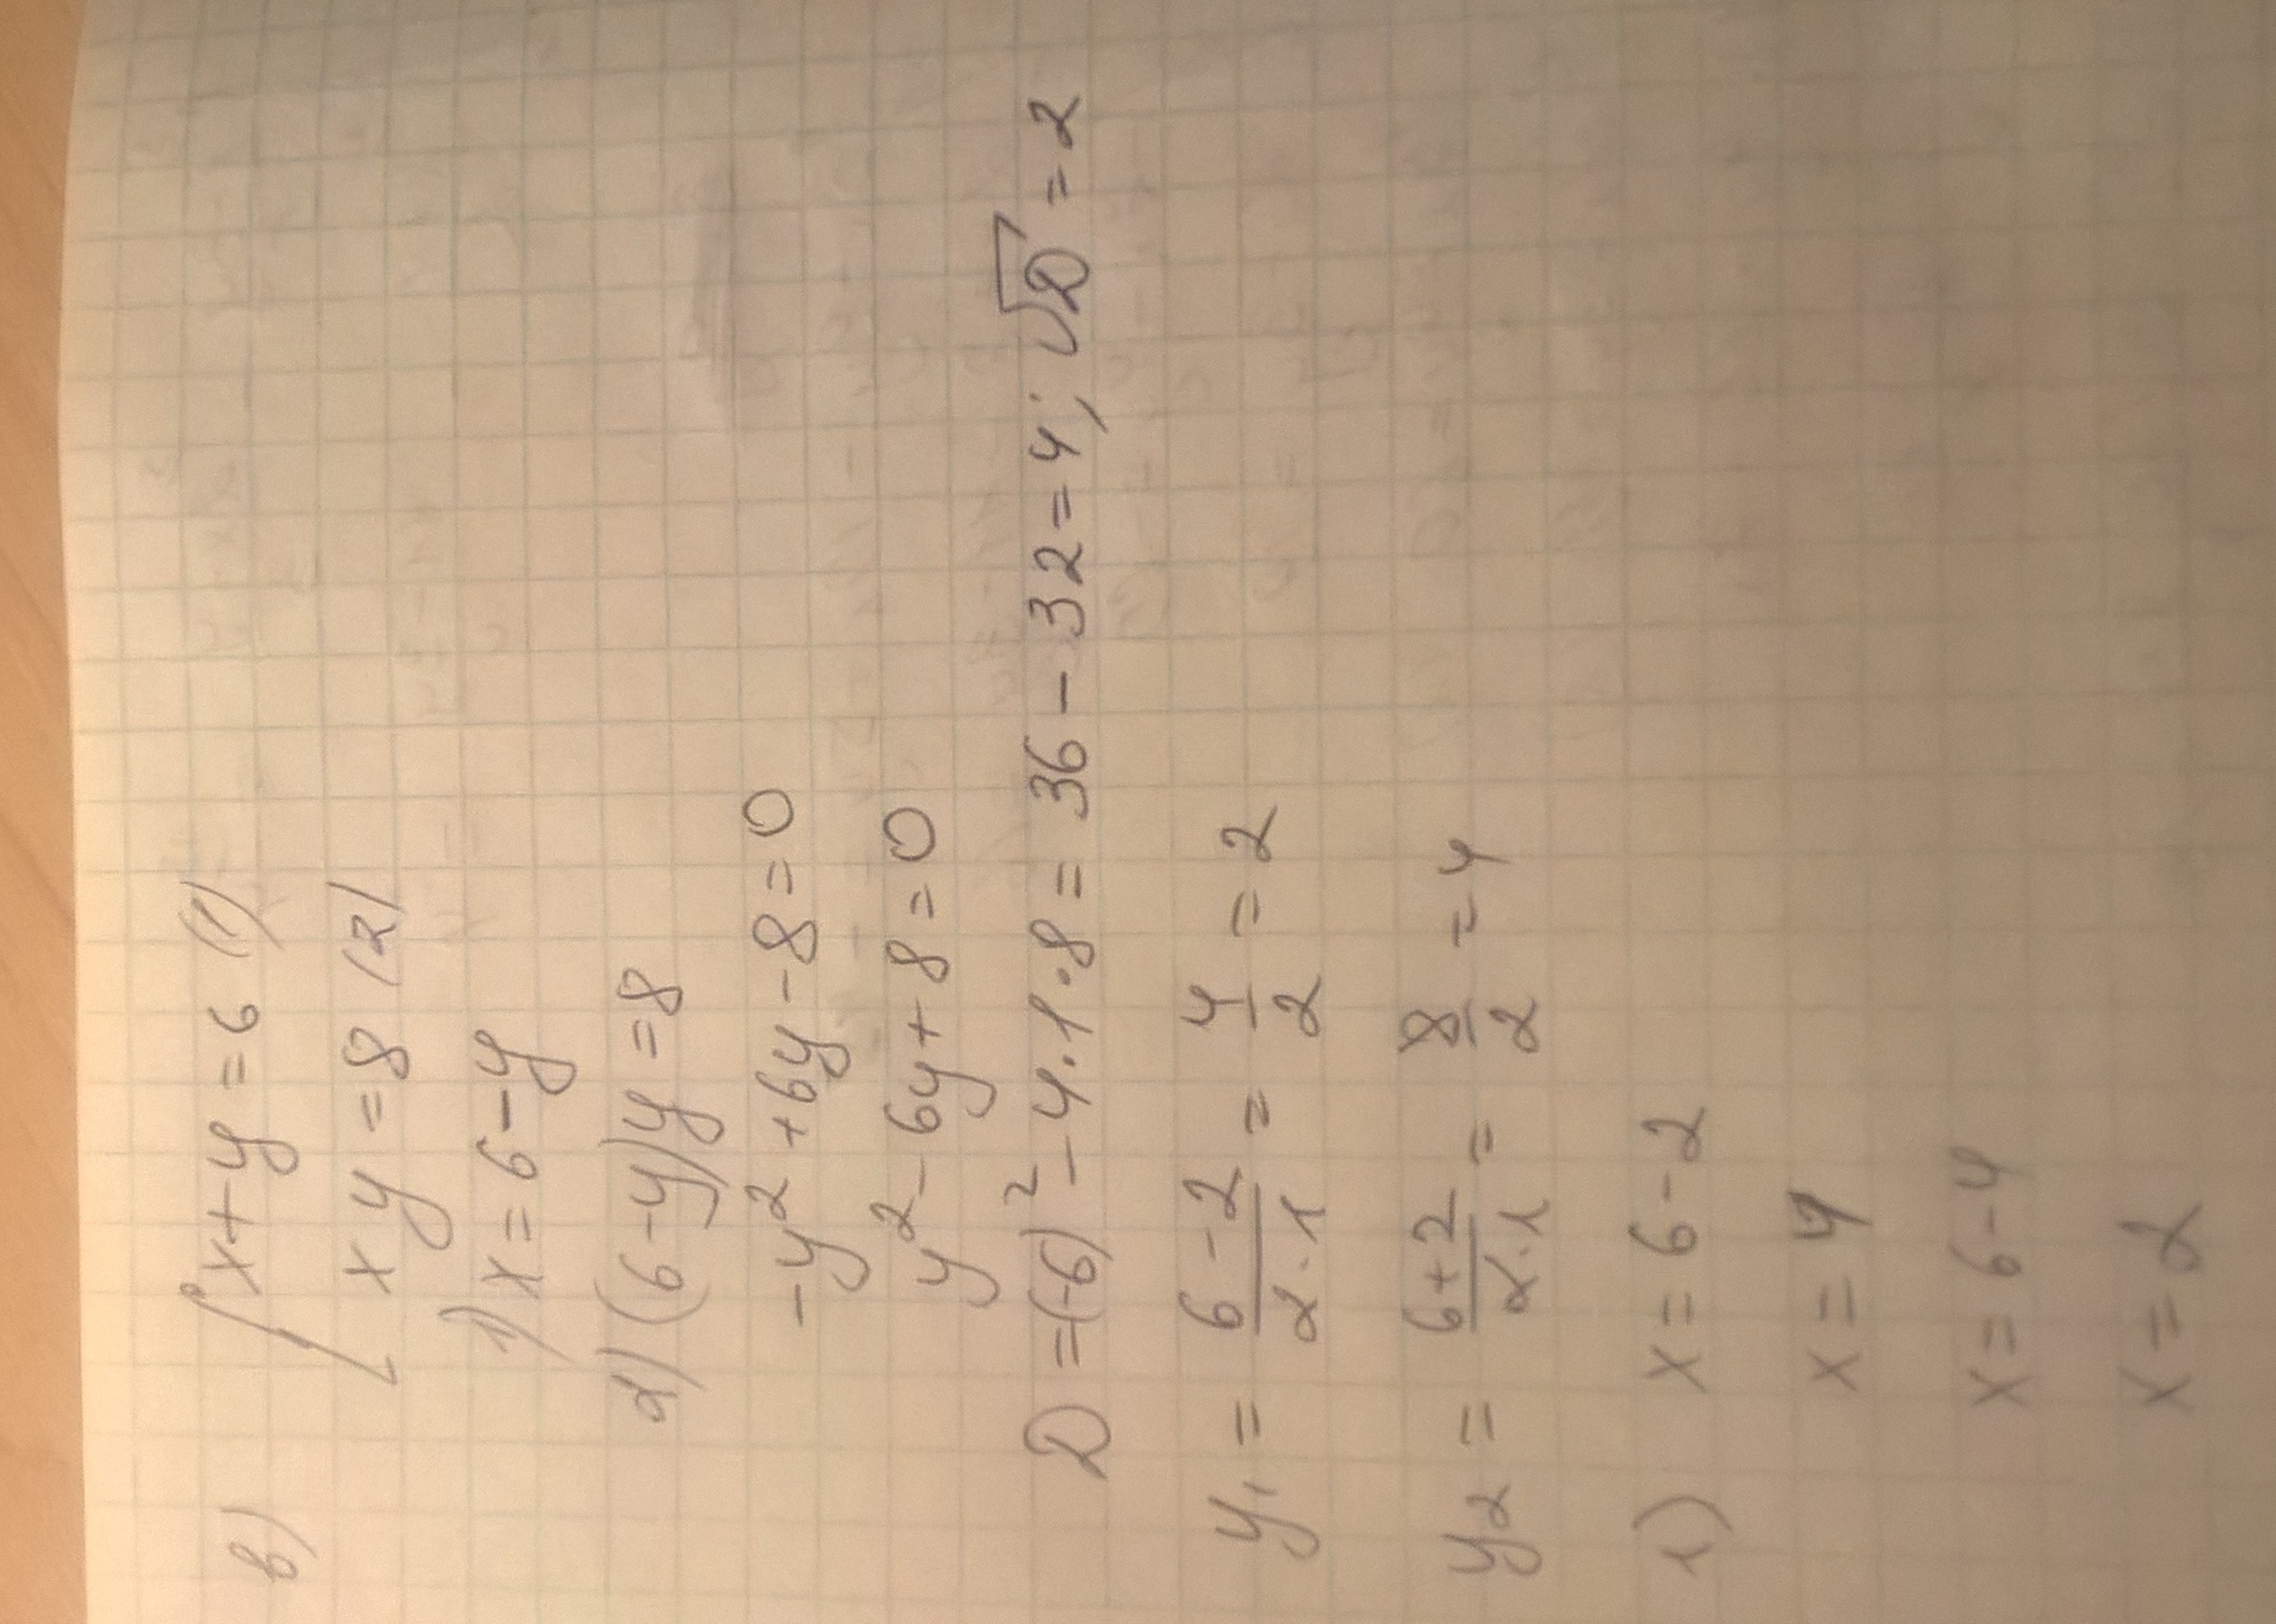 в) { x + y = 6 (1)
x y = 8 (2)
1) x = 6 - y
2) (6 - y) y = 8
- y² + 6y - 8 = 0
y² - 6y + 8 = 0
D = (-6)² - 4 · 1 · 8 = 36 - 32 = 4; √D = 2
y₁ = (6 - 2)/(2 · 1) = 4/2 = 2
y₂ = (6 + 2)/(2 · 1) = 8/2 = 4
1) x = 6 - 2
x = 4
x = 6 - 4
x = 2